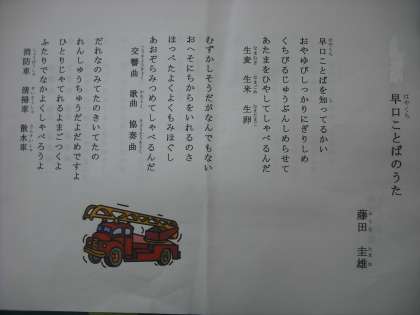 早口ことばのうた
はやくち
藤田 圭雄
ふじた たまお
早口ことばを知ってるかい
はやくち
おやゆびしっかりにぎりしめ
くちびるじゅうぶんしめらせて
あたまをひやしてしゃべるんだ
生麦 生米 生卵
なまむぎ なまごめ なまたまご
むずかしそうだがなんでもない
おへそにちからをいれるのさ
ほっぺたよくよくもみほぐし
あおぞらみつめてしゃべるんだ
交響曲 歌曲 協奏曲
だれなのみてたのきいてたの
れんしゅうちゅうだよだめですよ
ひとりじゃてれるよまごつくよ
ふたりでなかよくしゃべろうよ
消防車 清掃車 散水車
しょうぼうしゃ せいそうしゃ さんすいしゃ